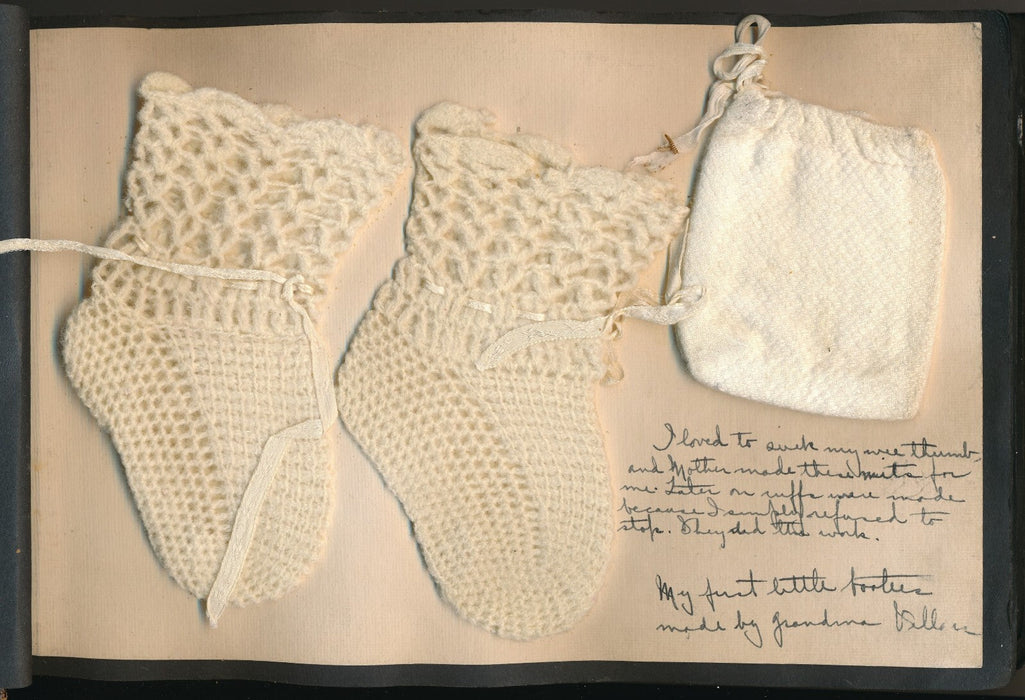 I loved to suck my wee thumb,
and Mother made these mits for
me. Later on cuffs were made
because I simply refused to
stop. They did the work.
My first little booties
made by grandma